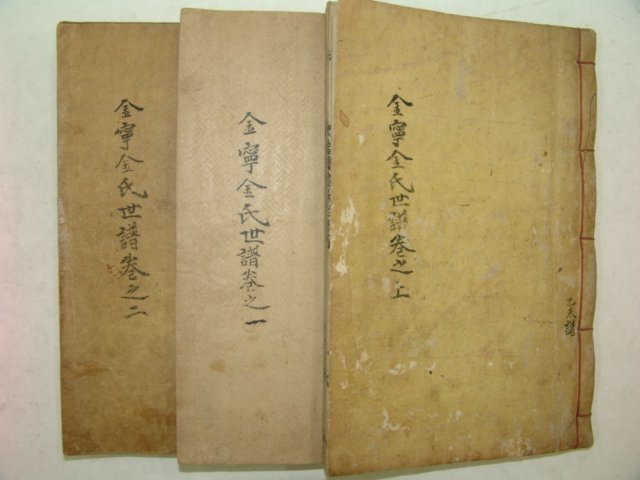 金寧金氏世譜卷之上
乙未譜
金寧金氏世譜卷之一
金寧金氏世譜卷之二